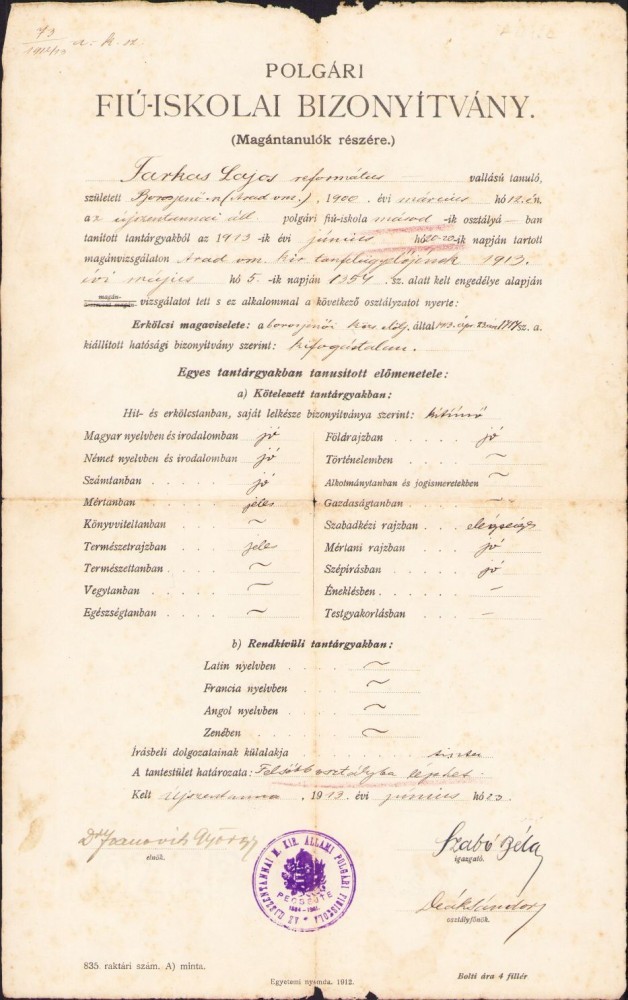 73
1912/13
POLGÁRI
FIÚ-ISKOLAI BIZONYÍTVÁNY.
(Magántanulók részére.)
Farkas Lajos református vallású tanuló,
született Borosjenő-n (Arad vm.), 1900. évi március hó 12.én.
az újszentannai áll. polgári fiú-iskola másod -ik osztályá – ban
tanított tantárgyakból az 1913-ik évi június hó 20-ik napján tartott
magánvizsgálaton Arad vm. kir. tanfelügyelőjének 1913.
évi május hó 5.-ik napján 1354. sz. alatt kelt engedélye alapján
magán-
vizsgálatot tett s ez alkalommal a következő osztályzatot nyerte:
Erkölcsi magaviselete: a borosjenői közs. elölj. által 1913. ápr. sz. a.
kiállított hatósági bizonyítvány szerint: kifogástalan.
Egyes tantárgyakban tanusított előmenetele:
a) Kötelezett tantárgyakban:
Hit- és erkölcstanban, saját lelkésze bizonyítványa szerint: kitünő
Magyar nyelvben és irodalomban jó
Földrajzban . . . . . jó
Német nyelvben és irodalomban jó
Történelemben . . . . ~
Számtanban . . . . . jó
Alkotmánytanban és jogismeretekben ~
Mértanban . . . . . jeles
Gazdaságtanban . . . . ~
Könyvviteltanban . . . ~
Szabadkézi rajzban . . . elégséges
Természetrajzban . . . jeles
Mértani rajzban . . . jó
Természettanban . . . ~
Szépírásban . . . . jó
Vegytanban . . . . ~
Éneklésben . . . . –
Egészségtanban . . . . ~
Testgyakorlásban . . . –
b) Rendkívüli tantárgyakban:
Latin nyelvben . . . . ~
Francia nyelvben . . . . ~
Angol nyelvben . . . . ~
Zenében . . . . . ~
Írásbeli dolgozatainak külalakja . . . . tiszta
A tantestület határozata: Felsőbb osztályba léphet.
Kelt Újszentanna, 1913. évi június hó 23.
Dr Ivanovits György
elnök.
Szabó Béla
igazgató.
AZ ÚJSZENTANNAI M. KIR. ÁLLAMI POLGÁRI FIÚISKOLA
PECSÉTJE
Deák Sándor
osztályfőnök.
835. raktári szám. A) minta.
Egyetemi nyomda. 1912.
Bolti ára 4 fillér